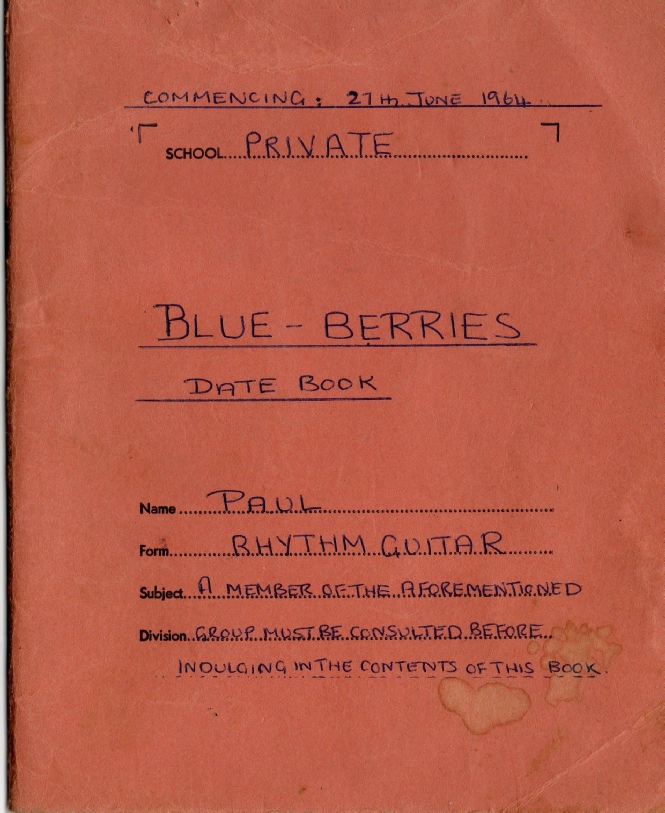 COMMENCING: 27th JUNE 1964.
SCHOOL PRIVATE
BLUE-BERRIES
DATE BOOK
Name PAUL
Form RHYTHM GUITAR
Subject A MEMBER OF THE AFOREMENTIONED
Division GROUP MUST BE CONSULTED BEFORE
INDULGING IN THE CONTENTS OF THIS BOOK.